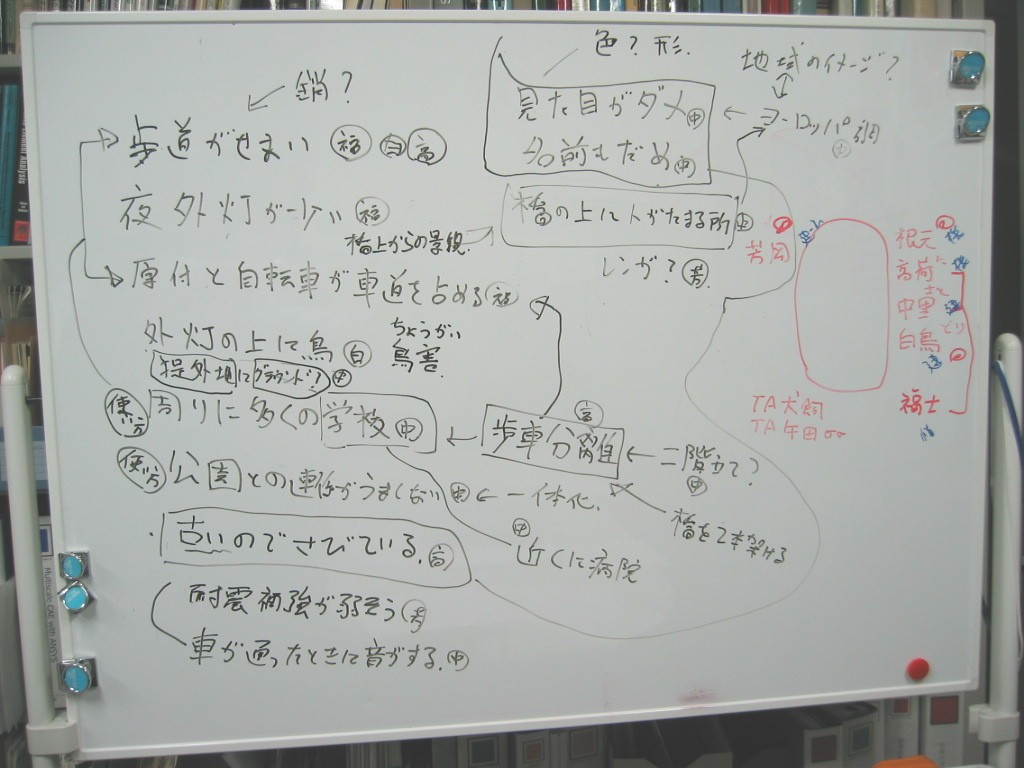 色？形.
鎖？
地域のイメージ？
見た目がダメ 中
ヨーロッパ調
歩道がせまい 福 白 高
名前もだめ 中
夜 外灯が 福
橋の上に人がたまる所
橋上からの景観
芳岡
根元
レンガ？ 芳
高荷
原付と自転車が車道を占める 福
中里 さと
白鳥 とり
外灯の上に鳥 白
ちょうがい
鳥害.
堤外地にグラウンド？ 中
TA 犬飼
福士
周りに多くの学校 中
歩車分離 高
TA
二階立て？ 中
公園との連係がうまくない
一体化.
橋を2本架ける
古いのでさびている. 高
中
近くに病院
耐震補強が弱そう 芳
車が通ったときに音がする. 中